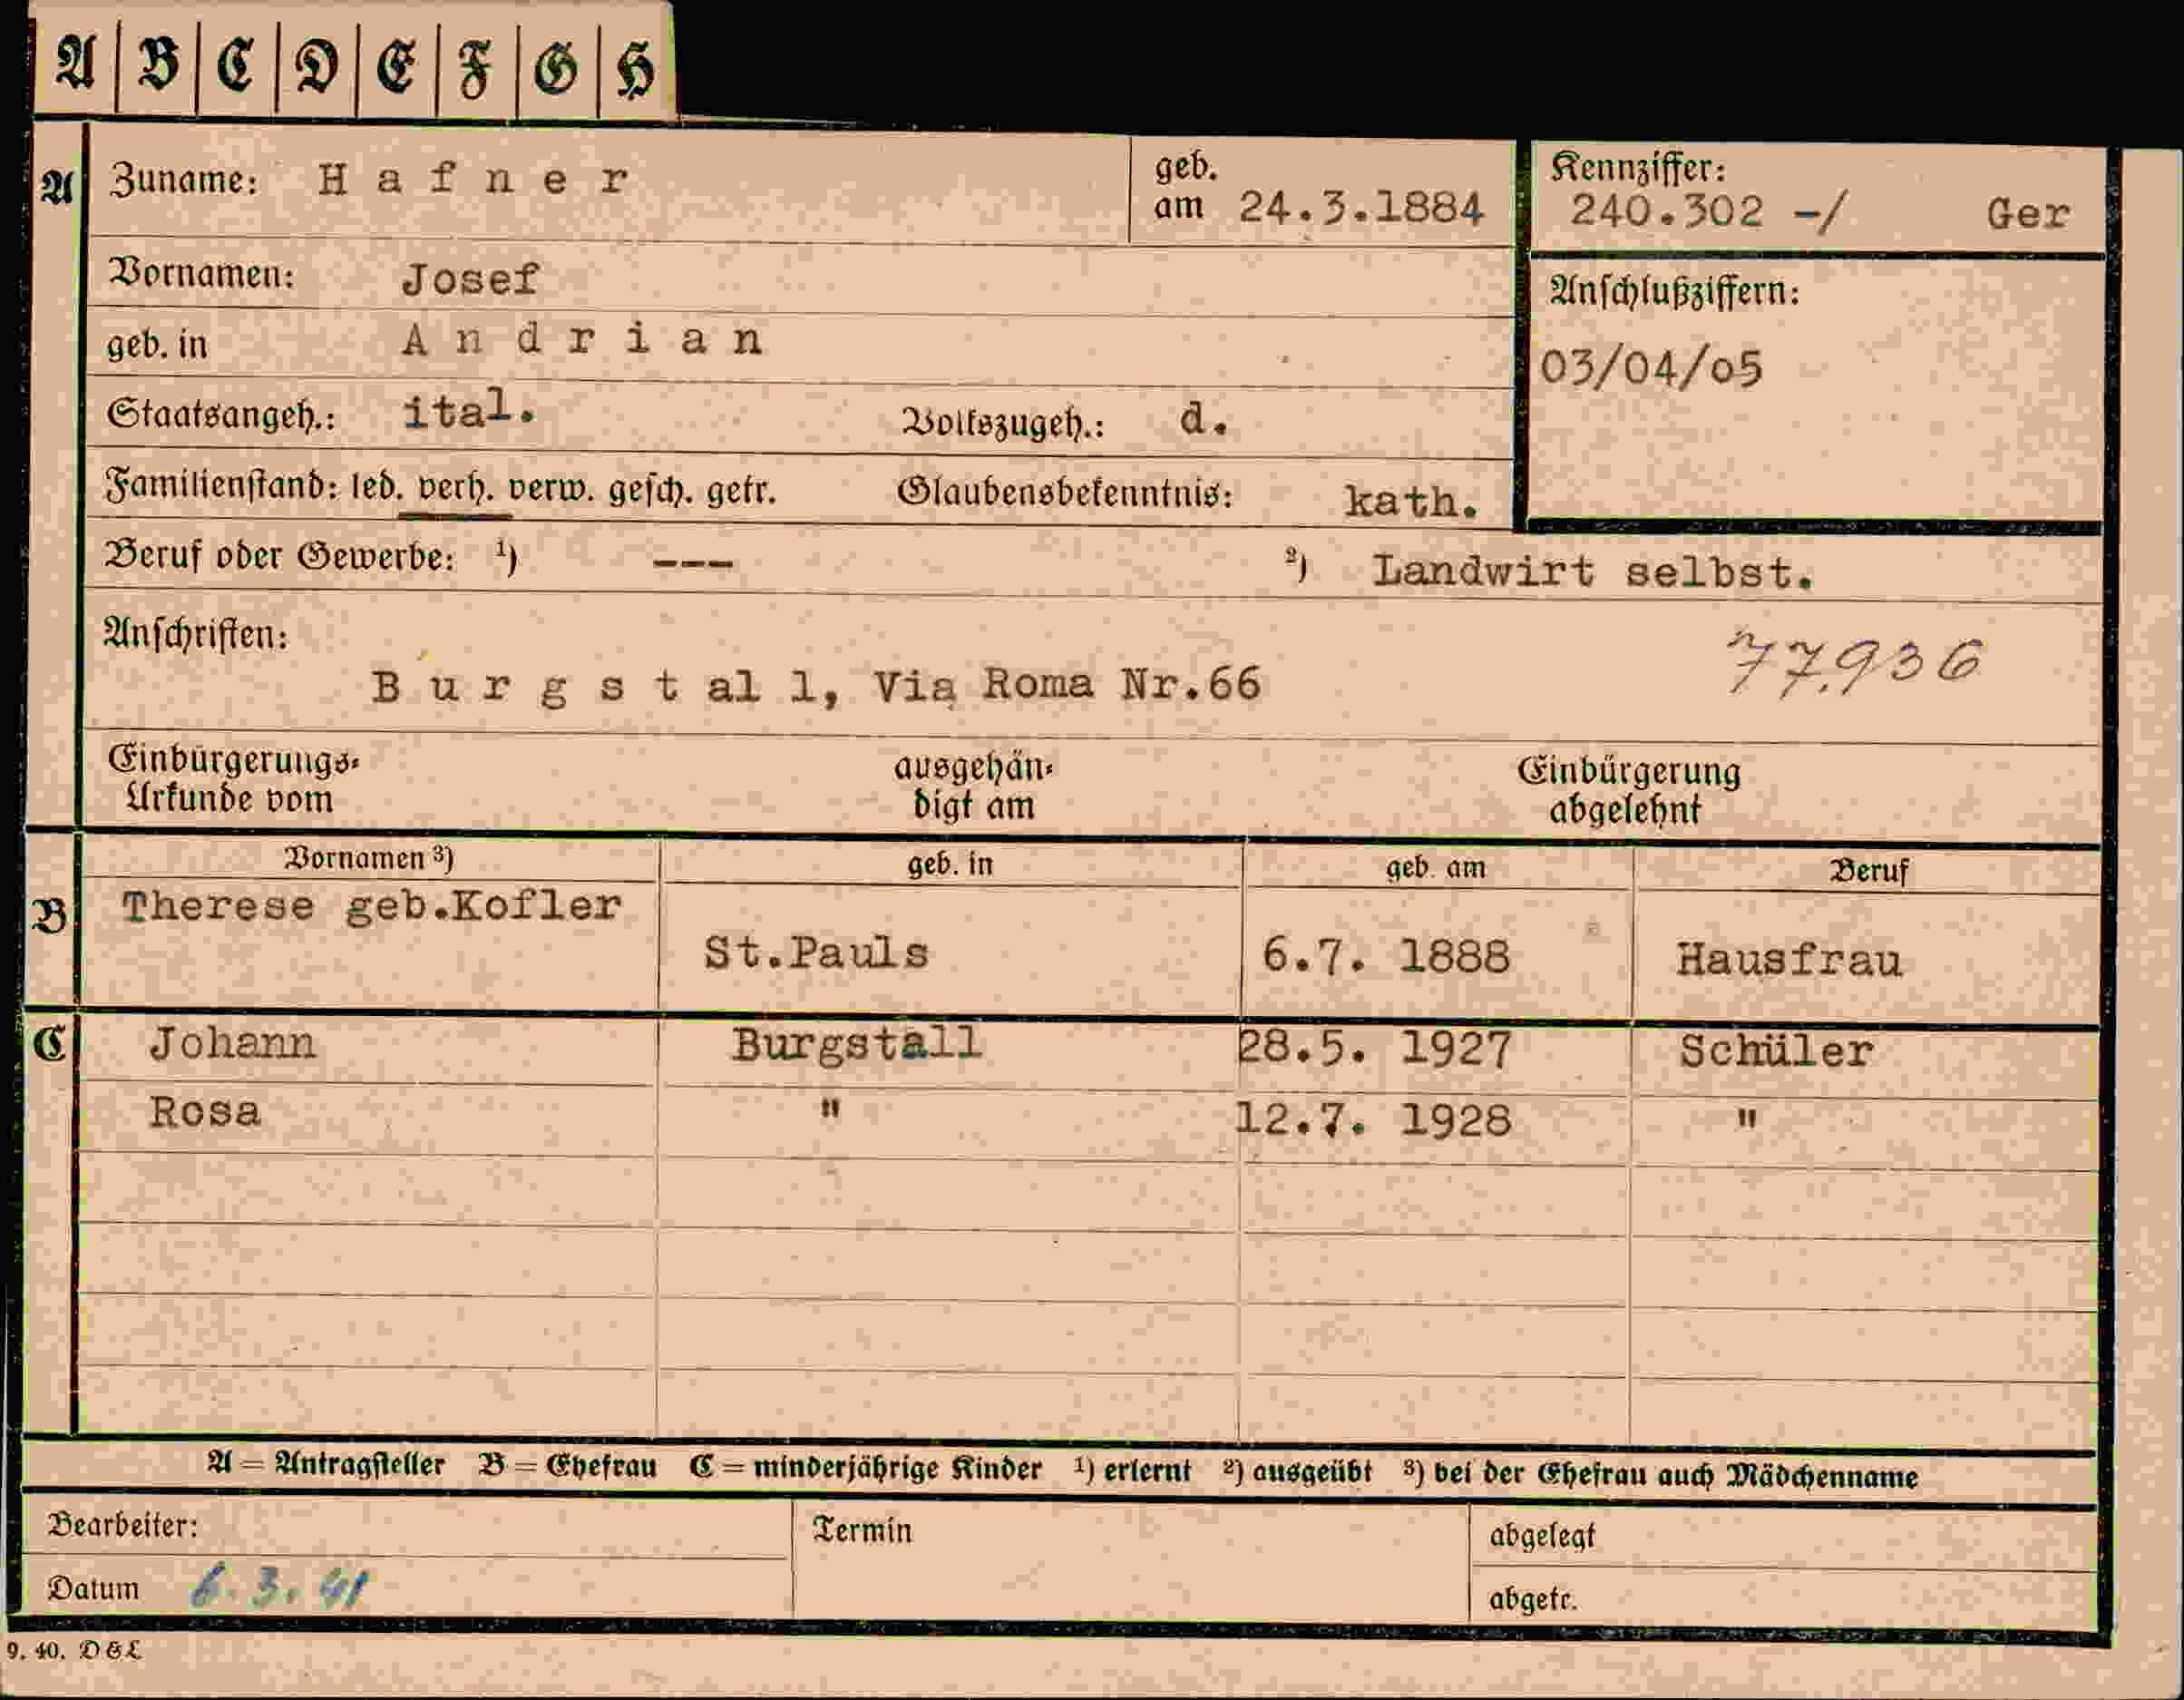 A B C D E F G H
A Zuname: Hafner geb. am 24.3.1884 Kennziffer: 240.302 -/ Ger
Vornamen: Josef
Anschlußziffern:
geb. in Andrian
03/04/05
Staatsangeh.: ital. Volkszugeh.: d.
Familienstand: led. verh. verw. gesch. getr. Glaubensbekenntnis: kath.
Beruf oder Gewerbe: ¹) --- ²) Landwirt selbst.
Anschriften:
77.936
Burgstall, Via Roma Nr.66
Einbürgerungs-Urkunde vom ausgehändigt am Einbürgerung abgelehnt
Vornamen ³) geb. in geb. am Beruf
B Therese geb.Kofler St.Pauls 6.7. 1888 Hausfrau
C Johann Burgstall 28.5. 1927 Schüler
Rosa " 12.7. 1928 "
A = Antragsteller B = Ehefrau C = minderjährige Kinder ¹) erlernt ²) ausgeübt ³) bei der Ehefrau auch Mädchenname
Bearbeiter: Termin abgelegt
Datum 6.3.41 abgetr.
9. 40. D & L